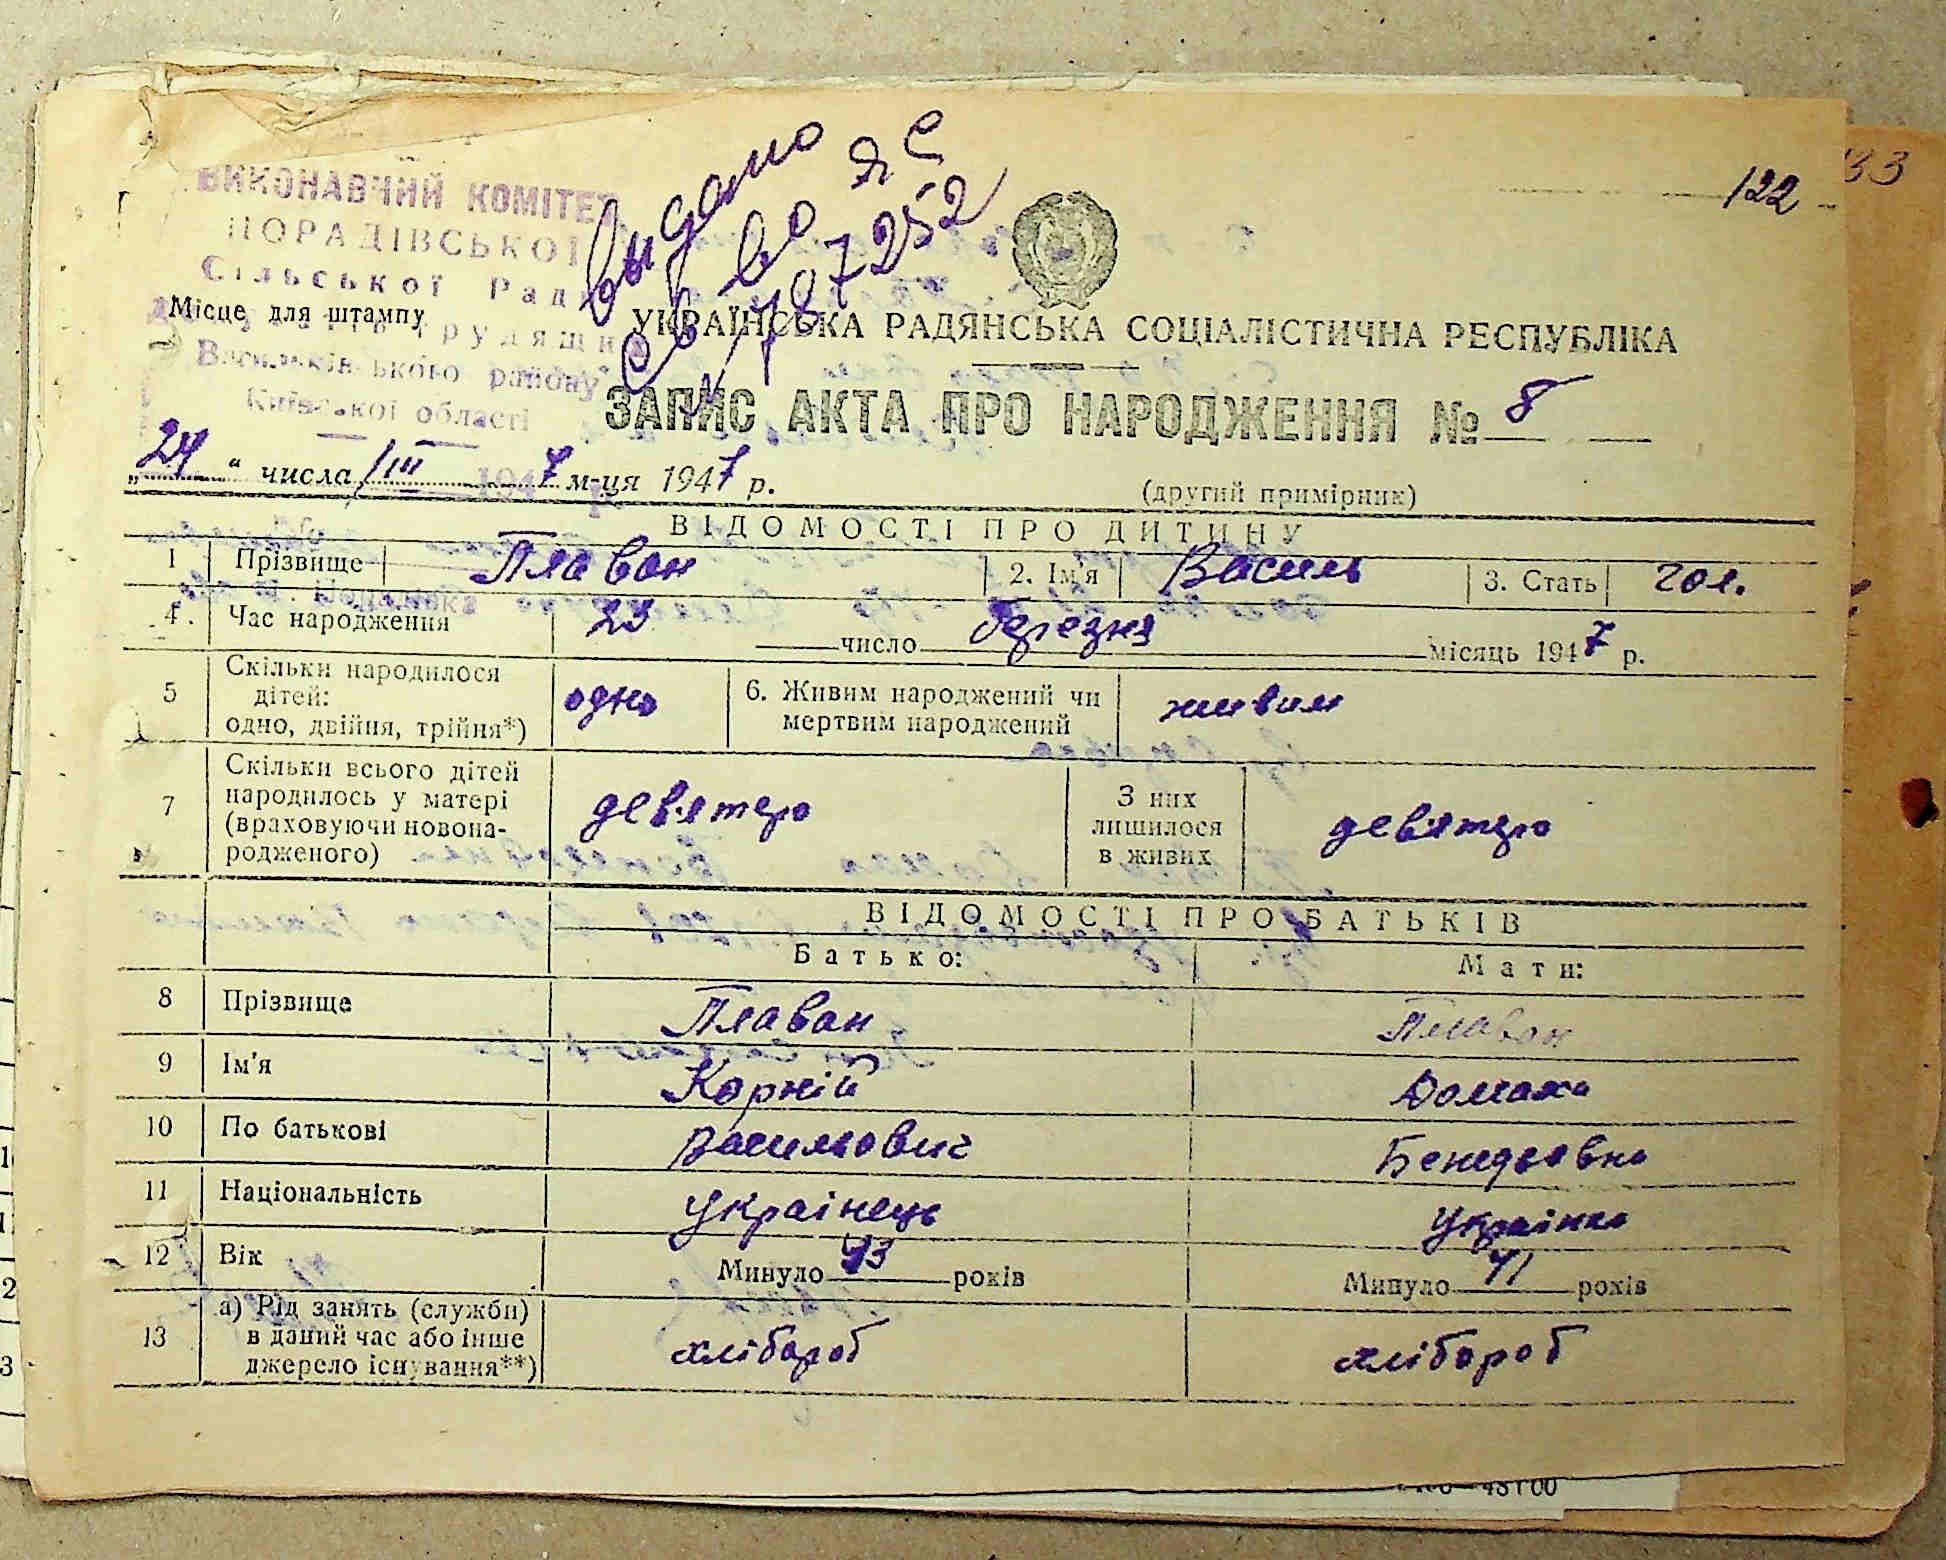 ВИКОНАВЧИЙ КОМІТЕТ
ПОРАДІВСЬКОЇ
Сільської Ради
трудящих
Васильківського району
Київської області
Місце для штампу
видано
св во ЯС
№ 787252
122
133
УКРАЇНСЬКА РАДЯНСЬКА СОЦІАЛІСТИЧНА РЕСПУБЛІКА
ЗАПИС АКТА ПРО НАРОДЖЕННЯ № 8
„24“ числа III 1947 м-ця 1947 р.
(другий примірник)
ВІДОМОСТІ ПРО ДИТИНУ
1 Прізвище Плаван 2. Ім'я Василь 3. Стать чол.
4. Час народження 23 число березня місяць 1947 р.
5 Скільки народилося дітей: одно, двійня, трійня*) одно 6. Живим народжений чи мертвим народжений живим
7 Скільки всього дітей народилось у матері (враховуючи новонародженого) девятеро З них лишилося в живих девятеро
ВІДОМОСТІ ПРО БАТЬКІВ
Батько: Мати:
8 Прізвище Плаван Плаван
9 Ім'я Корній Домаха
10 По батькові Васильович
11 Національність Українець Українка
12 Вік Минуло 43 років Минуло 41 років
13 а) Рід занять (служби) в даний час або інше джерело існування**) хлібороб хлібороб